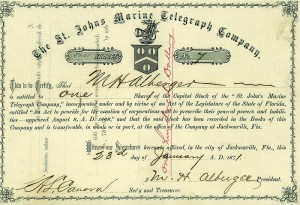 The St. Johns Marine Telegraph Company.
No. 7
This is to Certify That M. H. Alberger
is entitled to one Shares of the Capital Stock of the "St. John's Marine
Telegraph Company," incorporated under and by virtue of an Act of the Legislature of the State of Florida,
entitled "An Act to provide for the creation of corporations and to prescribe their general powers and liabilities
—approved August 8, A. D. 1868," and that the said stock has been recorded in the Books of this
Company and is transferable, in whole or in part, at the office of the Company at Jacksonville, Fla.
Witness our Signatures hereto affixed, in the city of Jacksonville, Fla., this
23d day of January A. D. 1871.
M. H. Alberger President.
Sec'y and Treasurer.